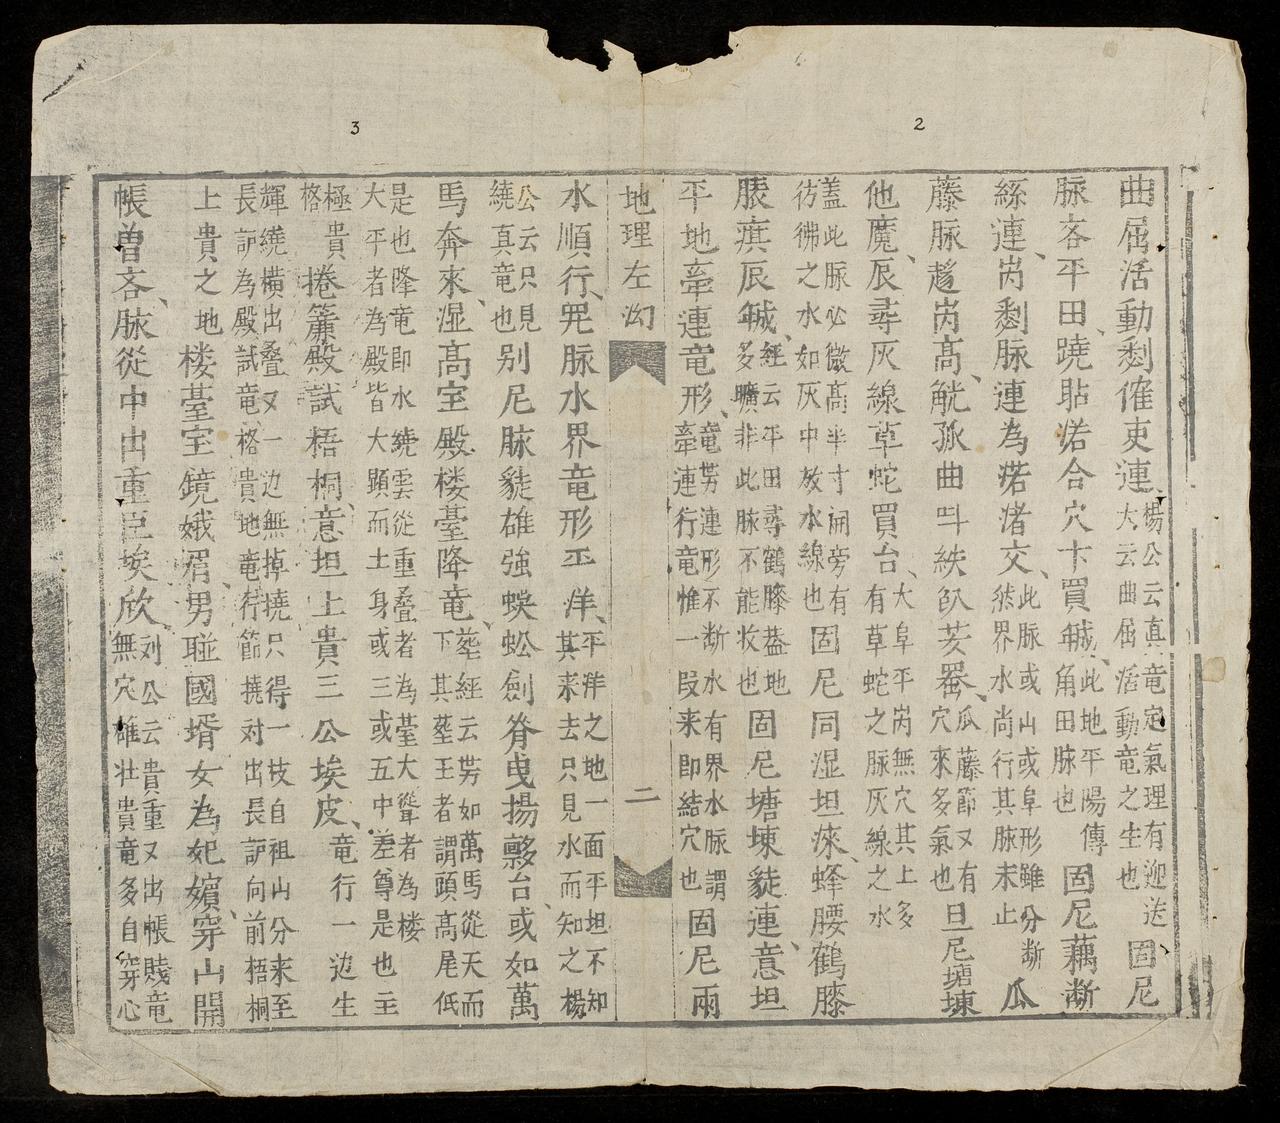 3
2
曲屈活動剩傕吏連楊公云直竜定氣理有迎送大云曲屈活動竜之生也固尼
脉吝平田蹺貼渃合穴卞買鹹此地平陽傳角田脉也固尼藕漸
絲連芮剩脉連為渃渚交此脉或山或阜形雖分断然界水尚行其脉未止瓜
藤脉趍芮高觥孤曲呌紩瓜藤節又有穴來多氣也旦尼塘埬
他魔辰尋灰線草蛇買台大阜平芮無穴其上多有草蛇之脉灰線之水
盖此脉必微高半寸兩旁有彷彿之水如灰中放水線也固尼同湿坦淶蜂腰鶴膝
辰鹹經云平田尋鶴膝蓋地多曠非此脉不能收也固尼塘埬蓰連意坦
平地牽連竜形竜劳連形不断水有界水脉謂牽連行竜惟一段来即結穴也固尼兩
地理左汭
二
水順行脉水界竜形平洋平洋之地一面平坦不知其来去只見水而知之楊
公云只見繞真竜也别尼脉蓰雄強蜈蚣劍脊曵揚台或如萬
馬奔來湿高室殿楼臺降竜葬經云劳如萬馬從天而下其葬王者謂頭高尾低
是也降竜即水繞雲從重叠者為臺大聳者為楼大平者為殿皆大顯而土身或三或五中差尊是也主
極貴格捲簾殿試梧桐意坦上貴三公埃皮竜行一边生
輝繞橫出叠又一边無掉撓只得一枝自祖山分来至長為殿試竜格貴地竜行節撓对出長向前梧桐
上貴之地楼臺室鏡娥眉男碰國壻女為妃嬪穿山開
帳曽吝脉從中出重臣埃欣刘公云貴重又出帳賤竜無穴雄壮貴竜多自穿心